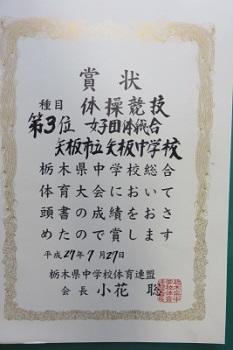 賞状
種目 体操競技
第3位 女子団体総合
矢板市立矢板中学校
栃木県中学校総合
体育大会において
頭書の成績をおさ
めたので賞します
平成27年7月27日
栃木県中学校体育連盟
会長 小花 聡